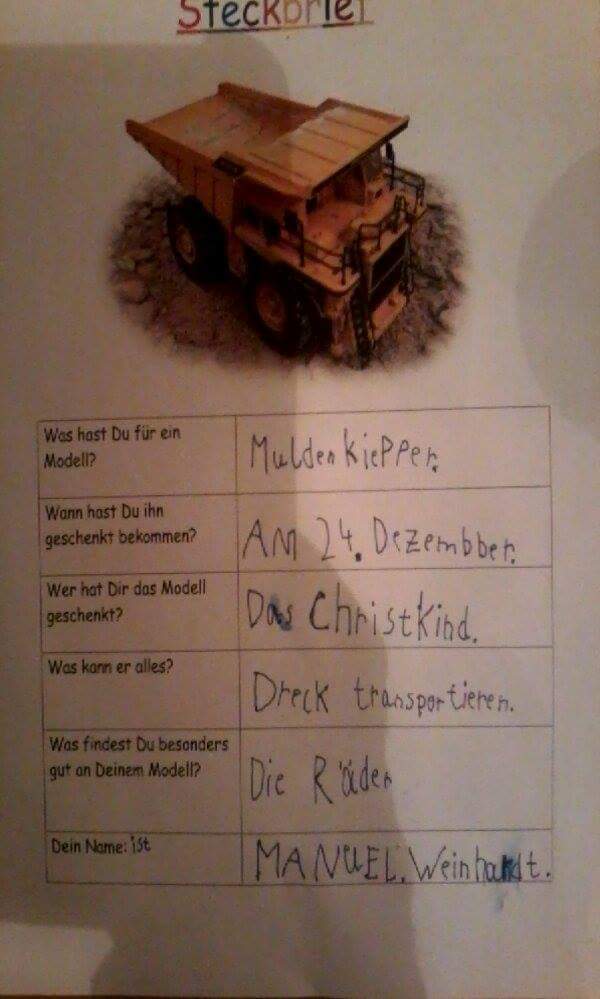 Steckbrief
Was hast Du für ein
Modell?
Muldenkiepper.
Wann hast Du ihn
geschenkt bekommen?
AM 24. Dezembber.
Wer hat Dir das Modell
geschenkt?
Das Christkind.
Was kann er alles?
Dreck transportieren.
Was findest Du besonders
gut an Deinem Modell?
Die Räder
Dein Name: ist
MANUEL. Weinhardt.